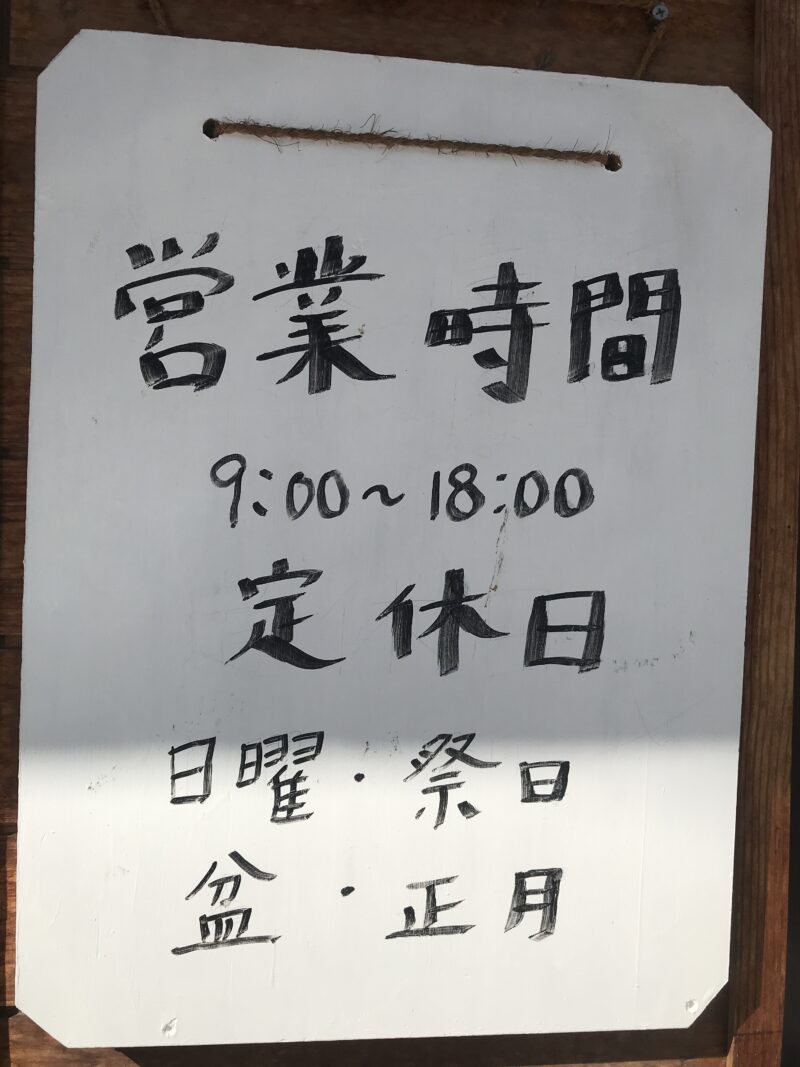 営業時間
9:00~18:00
定休日
日曜・祭日
盆・正月